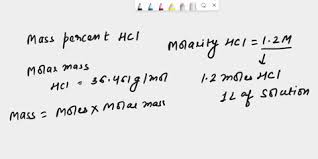 Mass percent HCl
Molar mass
HCl = 36.461 g/mol
Mass = Moles × Molar mass
Molarity HCl = 1.2 M
↓
1.2 moles HCl
1L of solution